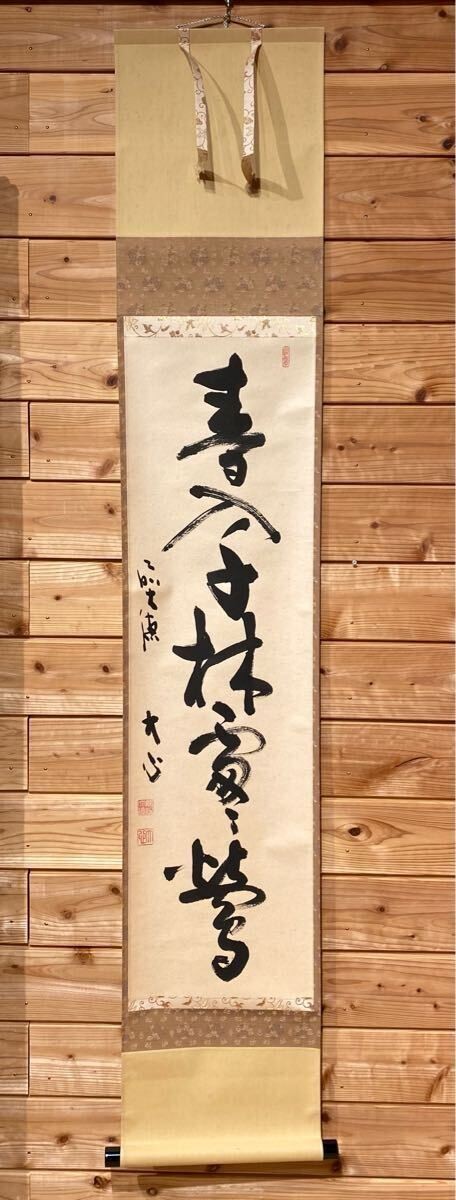 春入千林處〻鶯
大心